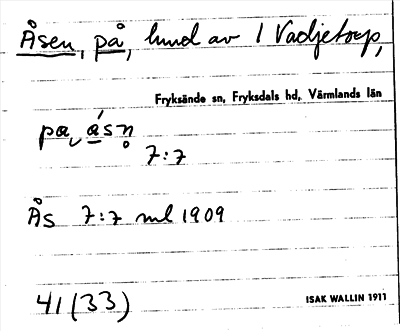 Åsen, på, hmd av 1 Vadjetorp,
Fryksände sn, Fryksdals hd, Värmlands län
pa ásn̥
7:7
Ås 7:7 ml 1909
41 (33)
ISAK WALLIN 1911